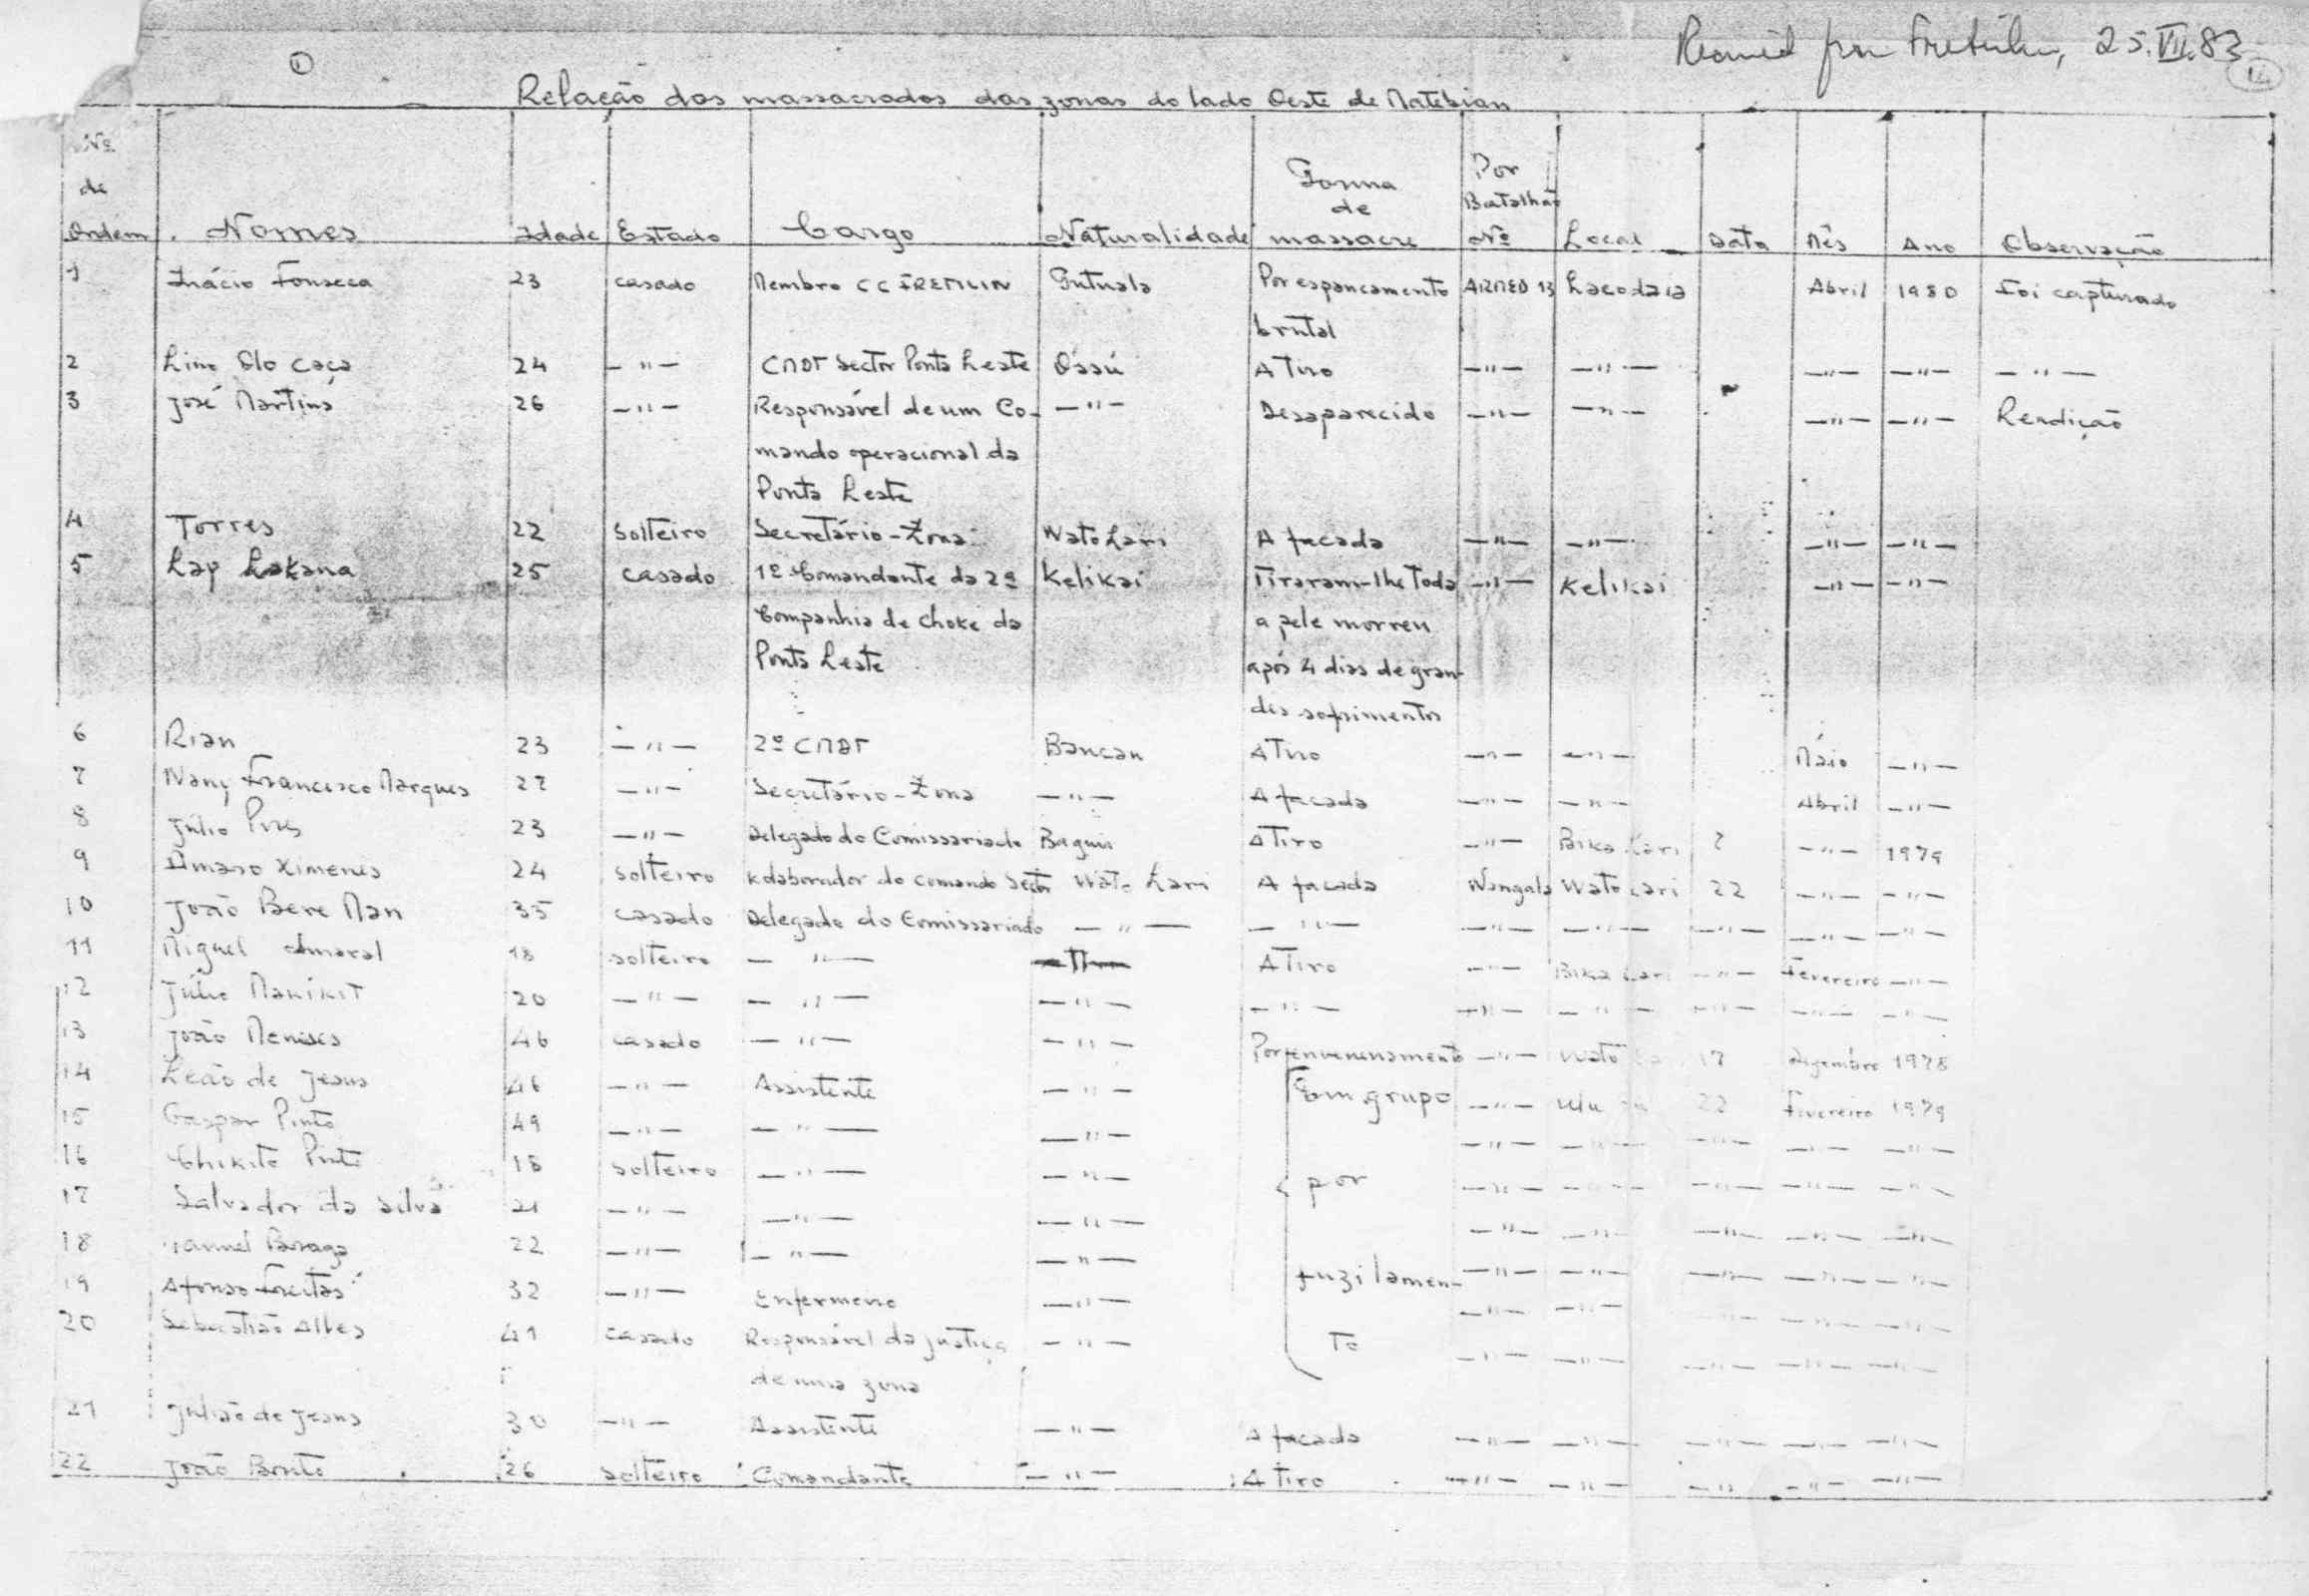 ①
25.VII.83
14
Relação dos massacrados das zonas do lado Oeste de Matebian
Nº de Ordem Nomes Idade Estado Cargo Naturalidade Forma de massacre Por Batalhão Nº Local Data Mês Ano Observação
1 Inácio Fonseca 23 casado Membro CC FRETILIN Por espancamento ARMED 13 Abril 1980 Foi capturado
brutal
2 24 —"— CMDT Sector Ponta Leste Ossú A Tiro —"— —"— —"— —"— —"—
3 José Martins 26 —"— Responsável de um Co- —"— Desaparecido —"— —"— —"— —"— Rendição
mando operacional da
Ponta Leste
4 Torres 22 Solteiro Secretário-Zona Wato Lari A facada —"— —"— —"— —"—
5 Lay Lakana 25 casado 1º Comandante da 2ª Kelikai Tiraram-lhe Toda —"— Kelikai —"— —"—
Companhia de choke da a pele morreu
Ponta Leste após 4 dias de gran-
des sofrimentos
6 Rian 23 —"— 2º CMDT Baucau A Tiro —"— —"— Máio —"—
7 Francisco Marques 22 —"— Secretário-Zona —"— A facada —"— —"— Abril —"—
8 Júlio 23 —"— Delegado do Comissariado Baguia A Tiro —"— ? —"— 1979
9 Amaro Ximenes 24 Solteiro Kolaborador do comando Sector Wato Lari A facada Wato Lari 22 —"— —"—
10 João Bere Mau 35 casado Delegado do Comissariado —"— —"— —"— —"— —"— —"— —"—
11 Miguel Amaral 18 solteiro —"— A Tiro —"— —"— Fevereiro —"—
12 Júlio Manikit 20 —"— —"— —"— —"— —"— —"— —"— —"— —"—
13 João Meneses 46 casado —"— —"— Por envenenamento —"— Wato 17 Dezembro 1978
14 Leão de Jesus 46 —"— Assistente —"— Em grupo —"— 22 Fevereiro 1979
15 Gaspar Pinto 49 —"— —"— —"— —"— —"— —"— —"— —"—
16 Chikito Pinto 18 solteiro —"— —"— por —"— —"— —"— —"— —"—
17 Salvador da Silva 21 —"— —"— —"— —"— —"— —"— —"— —"—
18 Braga 22 —"— —"— —"— fuzilamen- —"— —"— —"— —"— —"—
19 Afonso Freitas 32 —"— Enfermeiro —"— —"— —"— —"— —"— —"—
20 Sebastião Alves 41 casado Responsável da justiça —"— to —"— —"— —"— —"— —"—
de uma zona
21 Julião de Jesus 30 —"— Assistente —"— A facada —"— —"— —"— —"— —"—
22 João 26 solteiro Comandante —"— A Tiro —"— —"— —"— —"— —"—